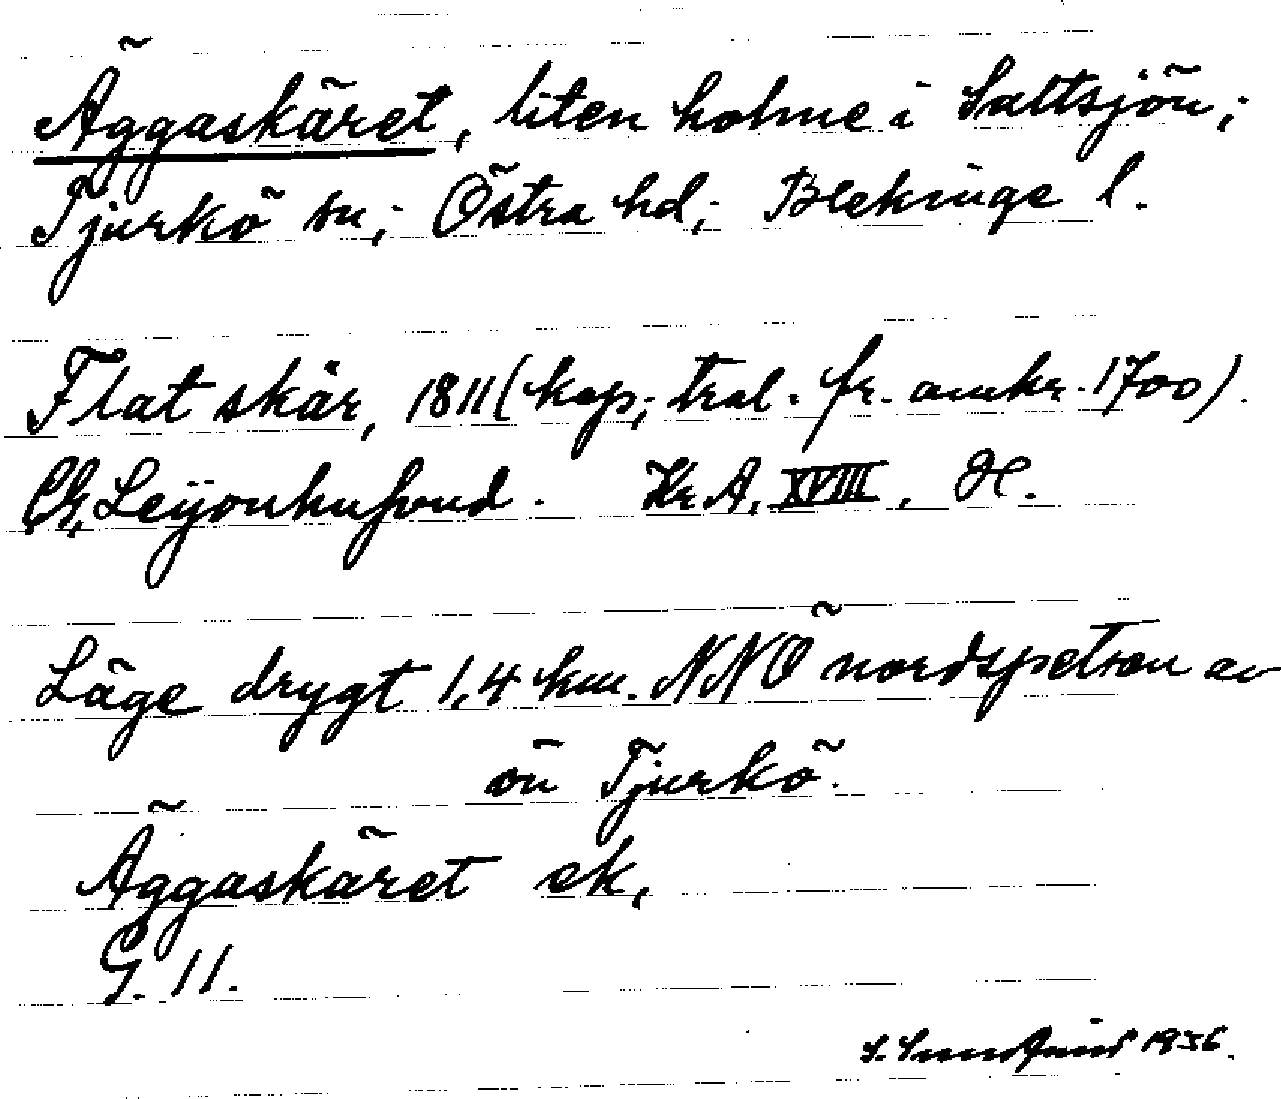 Äggaskäret, liten holme i Saltsjön;
Tjurkö sn; Östra hd; Blekinge l.
Flat skär, 1811 (kop; tral. fr. omkr. 1700).
Ch. Leijonhufvud. Kr A, XVIII, H.
Läge drygt 1,4 km. NNÖ nordspetsen av
ön Tjurkö.
Äggaskäret ek,
G. 11.
1936.